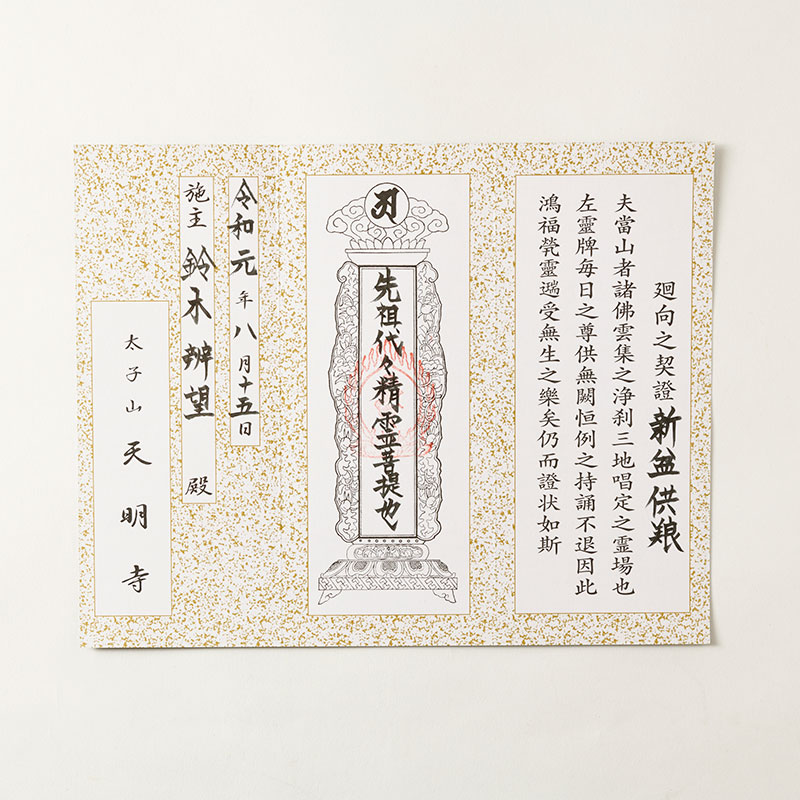 廻向之契證 新盆供粮
夫當山者諸佛雲集之浄刹三地唱定之霊場也
左靈牌毎日之尊供無闕恒例之持誦不退因此
鴻福甇靈遄受無生之樂矣仍而證状如斯
先祖代々精霊菩提也
令和元年八月十五日
施主 鈴木辨望 殿
太子山 天明寺